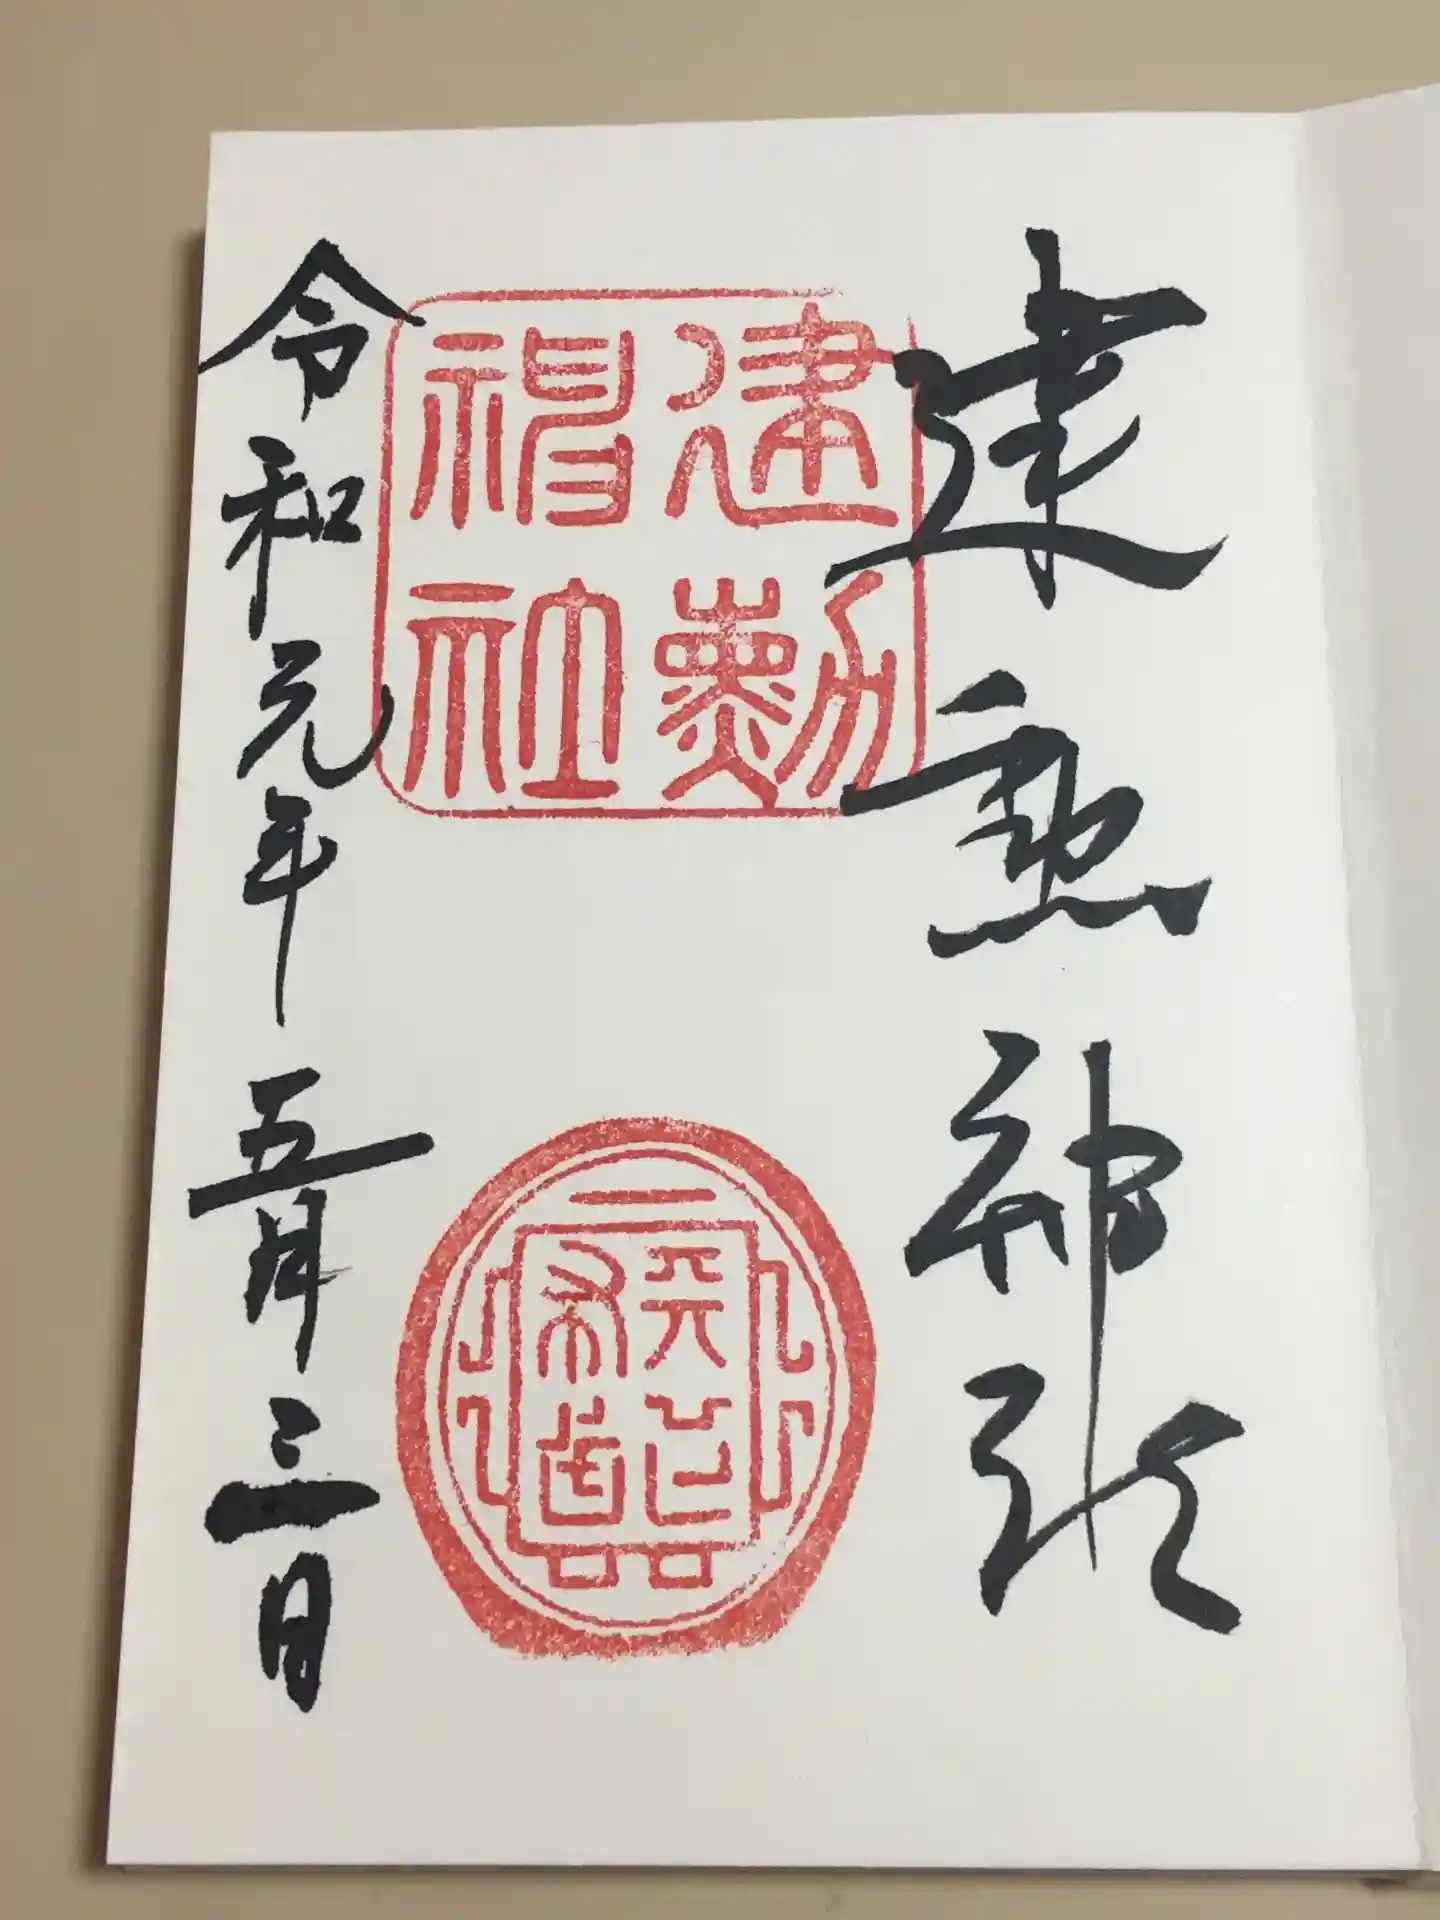 建勲神社
建勲神社
天下布武
令和元年五月三日